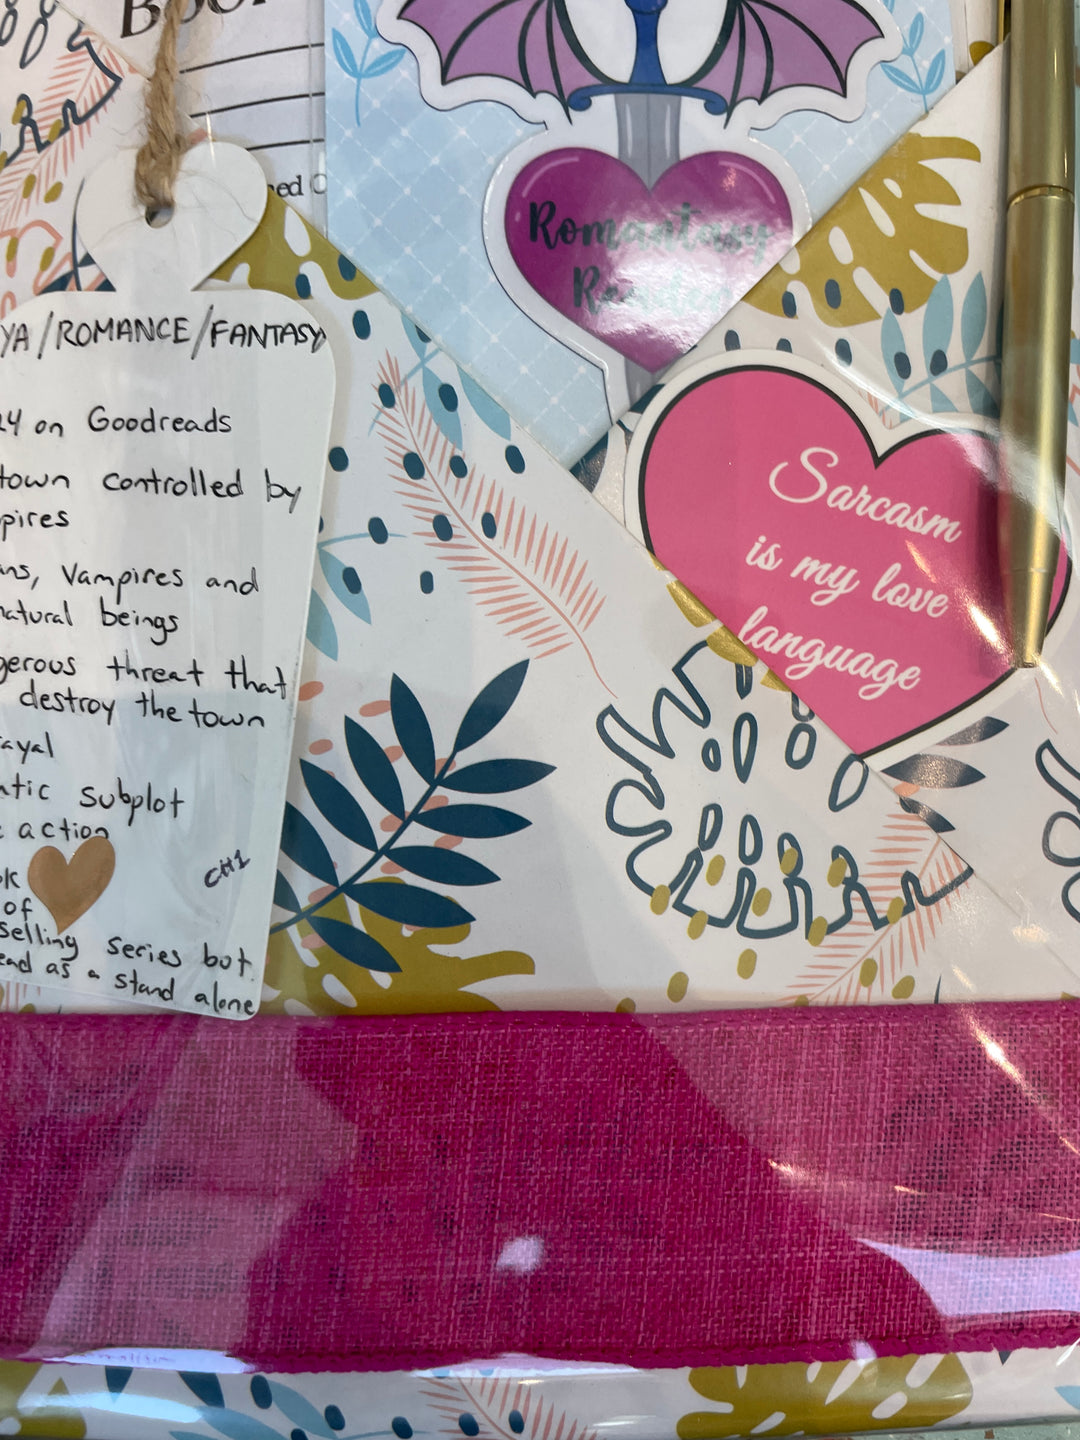 YA/ROMANCE/FANTASY
24 on Goodreads
town controlled by
pires
ans, Vampires and
natural beings
gerous threat that
destroy the town
ayal
ntic subplot
action
ok
of
selling series but
ead as a stand alone
CH1
ed
Romantasy
Reader
Sarcasm
is my love
language